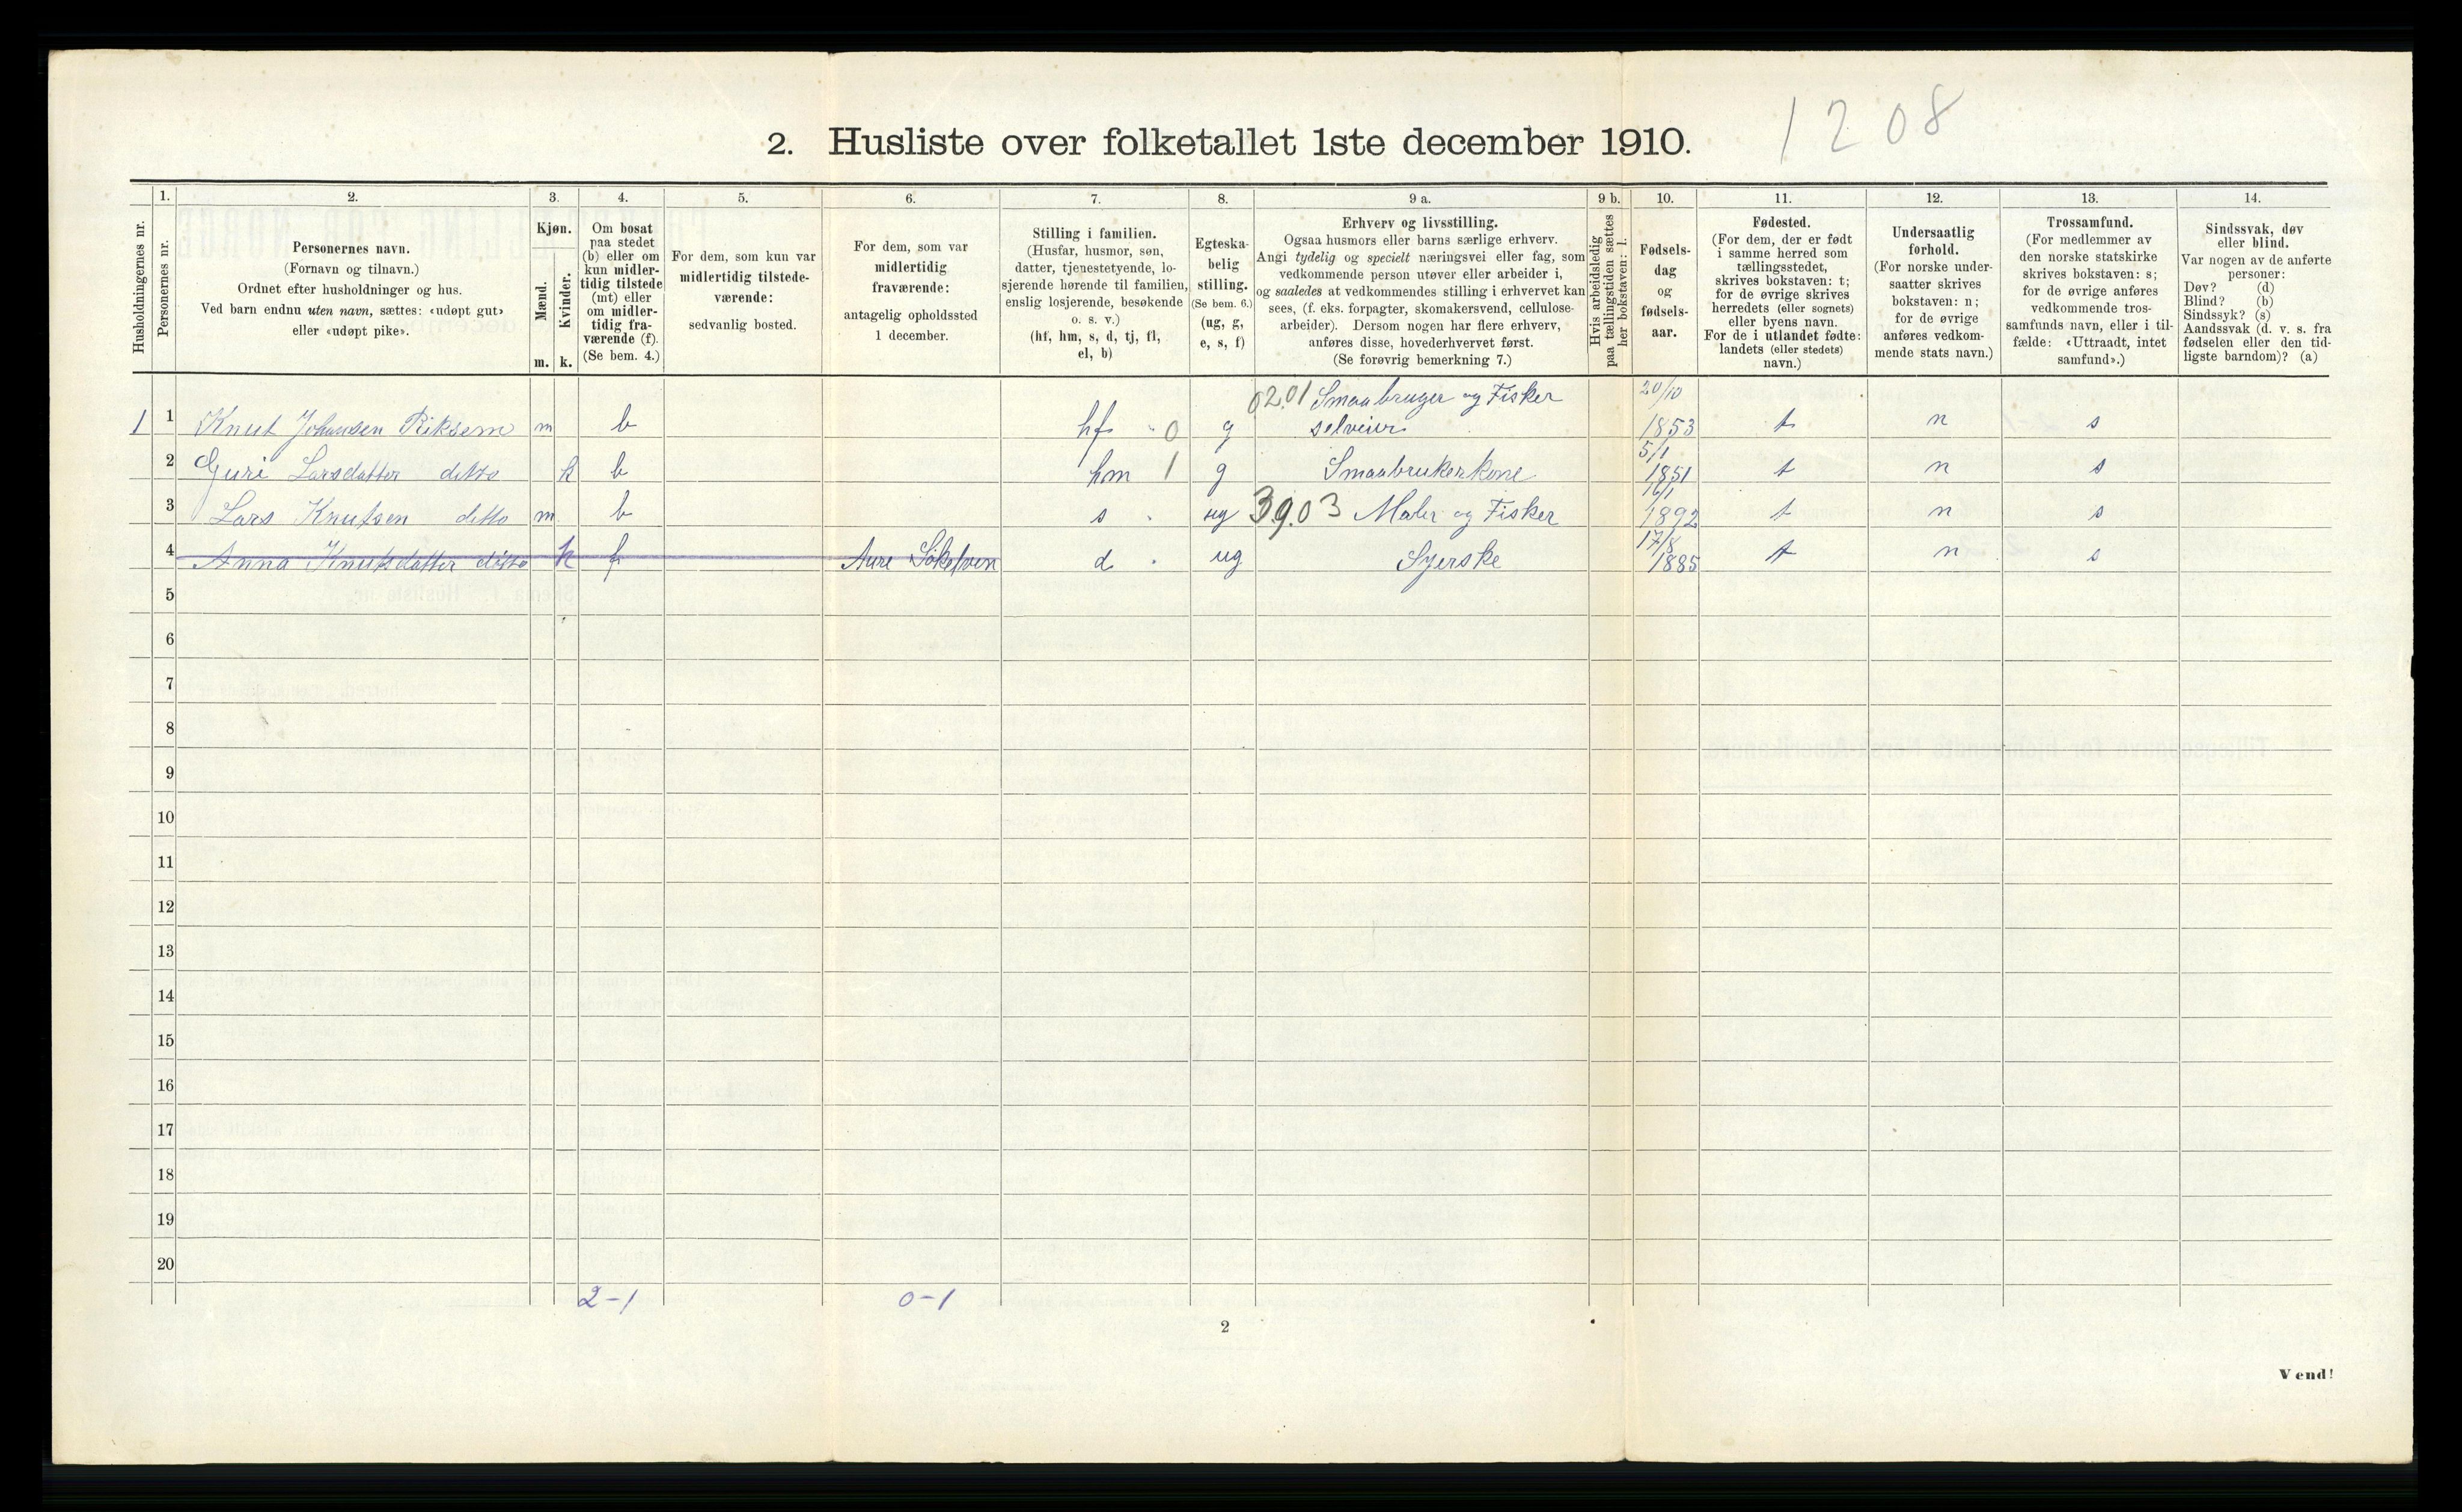 1208
2. Husliste over folketallet 1ste december 1910.
Husholdningernes nr.
1.
Personernes nr.
2.
Personernes navn.
(Fornavn og tilnavn.)
Ordnet efter husholdninger og hus.
Ved barn endnu uten navn, sættes: «udøpt gut»
eller «udøpt pike».
3.
Kjøn.
Mænd.
m.
Kvinder.
k.
4.
Om bosat
paa stedet
(b) eller om
kun midler-
tidig tilstede
(mt) eller
om midler-
tidig fra-
værende (f).
(Se bem. 4.)
5.
For dem, som kun var
midlertidig tilstede-
værende:
sedvanlig bosted.
6.
For dem, som var
midlertidig
fraværende:
antagelig opholdssted
1 december.
7.
Stilling i familien.
(Husfar, husmor, søn,
datter, tjenestetyende, lo-
sjerende hørende til familien,
enslig losjerende, besøkende
o. s. v.)
(hf, hm, s, d, tj, fl,
el, b)
8.
Egteska-
belig
stilling.
(Se bem. 6.)
(ug, g,
e, s, f)
9 a.
Erhverv og livsstilling.
Ogsaa husmors eller barns særlige erhverv.
Angi tydelig og specielt næringsvei eller fag, som
vedkommende person utøver eller arbeider i,
og saaledes at vedkommendes stilling i erhvervet kan
sees, (f. eks. forpagter, skomakersvend, cellulose-
arbeider). Dersom nogen har flere erhverv,
anføres disse, hovederhvervet først.
(Se forøvrig bemerkning 7.)
9 b.
Hvis arbeidsledig
paa tællingstiden sættes
her bokstaven: l.
10.
Fødsels-
dag
og
fødsels-
aar.
11.
Fødested.
(For dem, der er født
i samme herred som
tællingsstedet,
skrives bokstaven: t;
for de øvrige skrives
herredets (eller sognets)
eller byens navn.
For de i utlandet fødte:
landets (eller stedets)
navn.)
12.
Undersaatlig
forhold.
(For norske under-
saatter skrives
bokstaven: n;
for de øvrige
anføres vedkom-
mende stats navn.)
13.
Trossamfund.
(For medlemmer av
den norske statskirke
skrives bokstaven: s;
for de øvrige anføres
vedkommende tros-
samfunds navn, eller i til-
fælde: «Uttraadt, intet
samfund».)
14.
Sindssvak, døv
eller blind.
Var nogen av de anførte
personer:
Døv? (d)
Blind? (b)
Sindssyk? (s)
Aandssvak (d. v. s. fra
fødselen eller den tid-
ligste barndom)? (a)
02.01 Smaabruger og Fisker 20/10
1 1 Knut Johansen Riksem m b hf 0 g selveier 1853 t n s
5/1
2 Guri Larsdatter ditto k b hm 1 g Smaabrukerkone 1851 t n s
16/1
3 Lars Knutsen ditto m b s ug 39.03 Maler og Fisker 1892 t n s
17/8
4 Anna Knutsdatter ditto k f Aure d ug Syerske 1885 t n s
5
6
7
8
9
10
11
12
13
14
15
16
17
18
19
20
2-1 0-1
2
Vend!